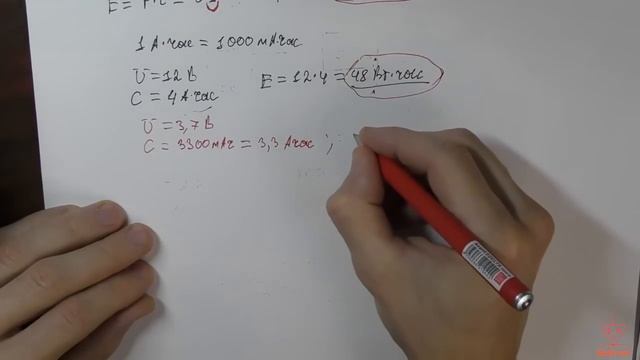 1 А·час = 1000 мА·час
U = 12 В
E = 12·4 = 48 Вт·час
C = 4 А·час
U = 3,7 В
C = 3300 мАч = 3,3 Ачас ;